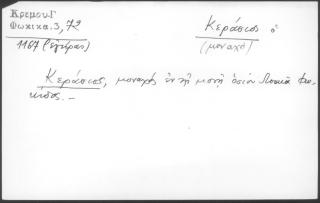 Κρεμου Γ
Φωκικα. 3, 72
1167
Κεράσιος ὁ
(μοναχὸς)
Κεράσιος, μοναχὸς ἐν τῇ μονῇ ὁσίου Λουκᾶ Φω-
κίδος. —